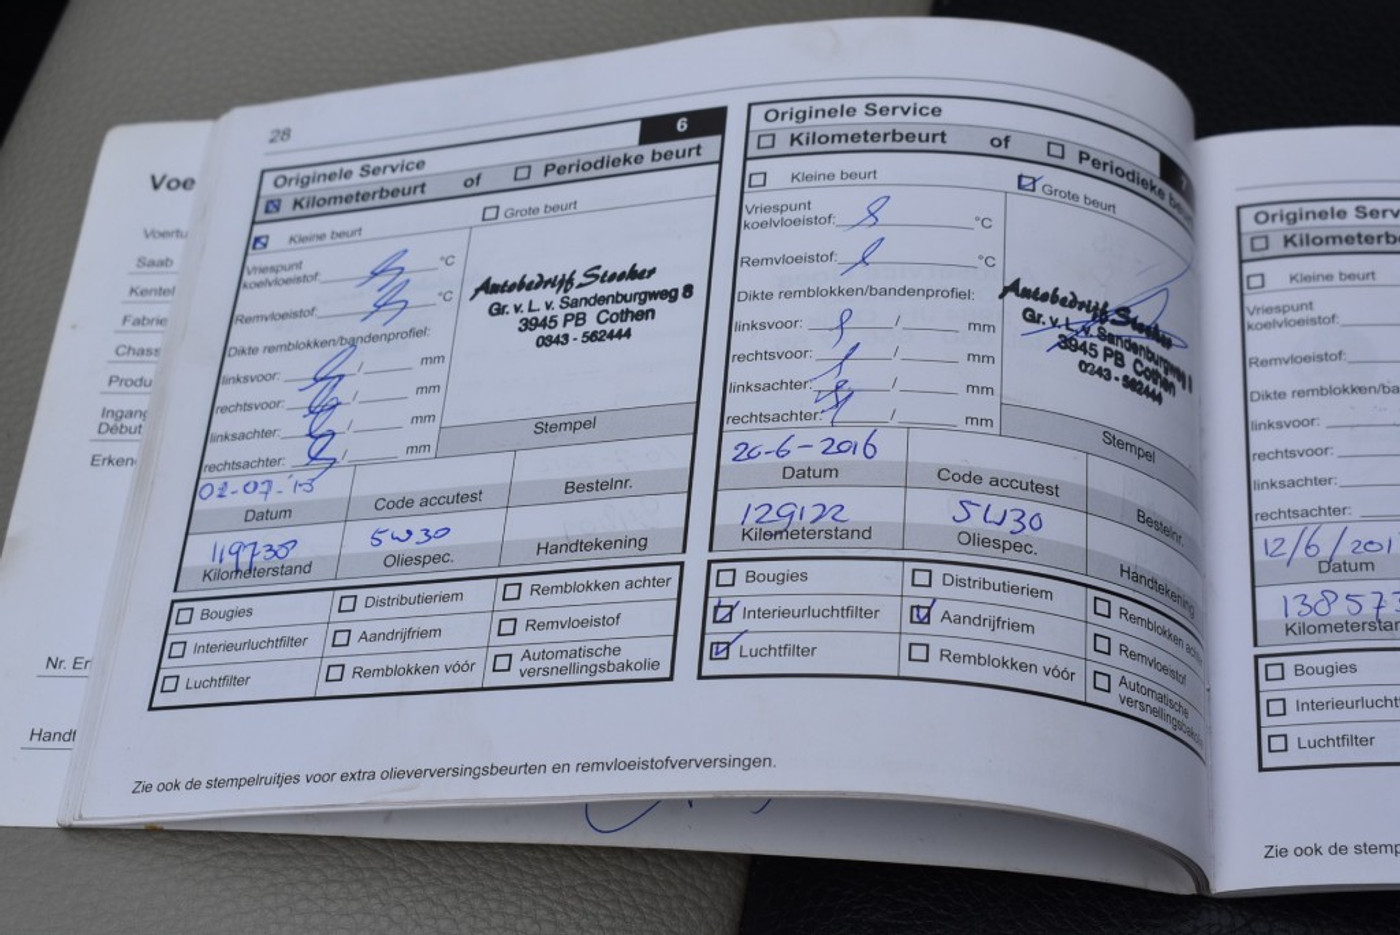 Voe
Voertu
Saab
Kentel
Fabrie
Chass
Produ
Ingang
Début
Erken
Nr. Er
Handt
28
6
Originele Service
Kilometerbeurt of Periodieke beurt
Kleine beurt
Grote beurt
Vriespunt
koelvloeistof: °C
Remvloeistof: °C
Dikte remblokken/bandenprofiel:
linksvoor: / mm
rechtsvoor: / mm
linksachter: / mm
rechtsachter: / mm
Autobedrijf Stooker
Gr. v. L. v. Sandenburgweg 8
3945 PB Cothen
0343 - 562444
Stempel
02-07-'15
Datum
Code accutest
Bestelnr.
119738
Kilometerstand
5W30
Oliespec.
Handtekening
Bougies
Distributieriem
Remblokken achter
Interieurluchtfilter
Aandrijfriem
Remvloeistof
Luchtfilter
Remblokken vóór
Automatische
versnellingsbakolie
Zie ook de stempelruitjes voor extra olieverversingsbeurten en remvloeistofverversingen.
7
Originele Service
Kilometerbeurt of Periodieke beurt
Kleine beurt
Grote beurt
Vriespunt
koelvloeistof: °C
Remvloeistof: °C
Dikte remblokken/bandenprofiel:
linksvoor: / mm
rechtsvoor: / mm
linksachter: / mm
rechtsachter: / mm
Autobedrijf Stooker
Gr. v. L. v. Sandenburgweg 8
3945 PB Cothen
0343 - 562444
Stempel
20-6-2016
Datum
Code accutest
Bestelnr.
129122
Kilometerstand
5W30
Oliespec.
Handtekening
Bougies
Distributieriem
Remblokken achter
Interieurluchtfilter
Aandrijfriem
Remvloeistof
Luchtfilter
Remblokken vóór
Automatische
versnellingsbakolie
Originele Serv
Kilometerb
Kleine beurt
Vriespunt
koelvloeistof:
Remvloeistof:
Dikte remblokken/ba
linksvoor:
rechtsvoor:
linksachter:
rechtsachter:
12/6/201
Datum
138573
Kilometerstan
Bougies
Interieurlucht
Luchtfilter
Zie ook de stemp